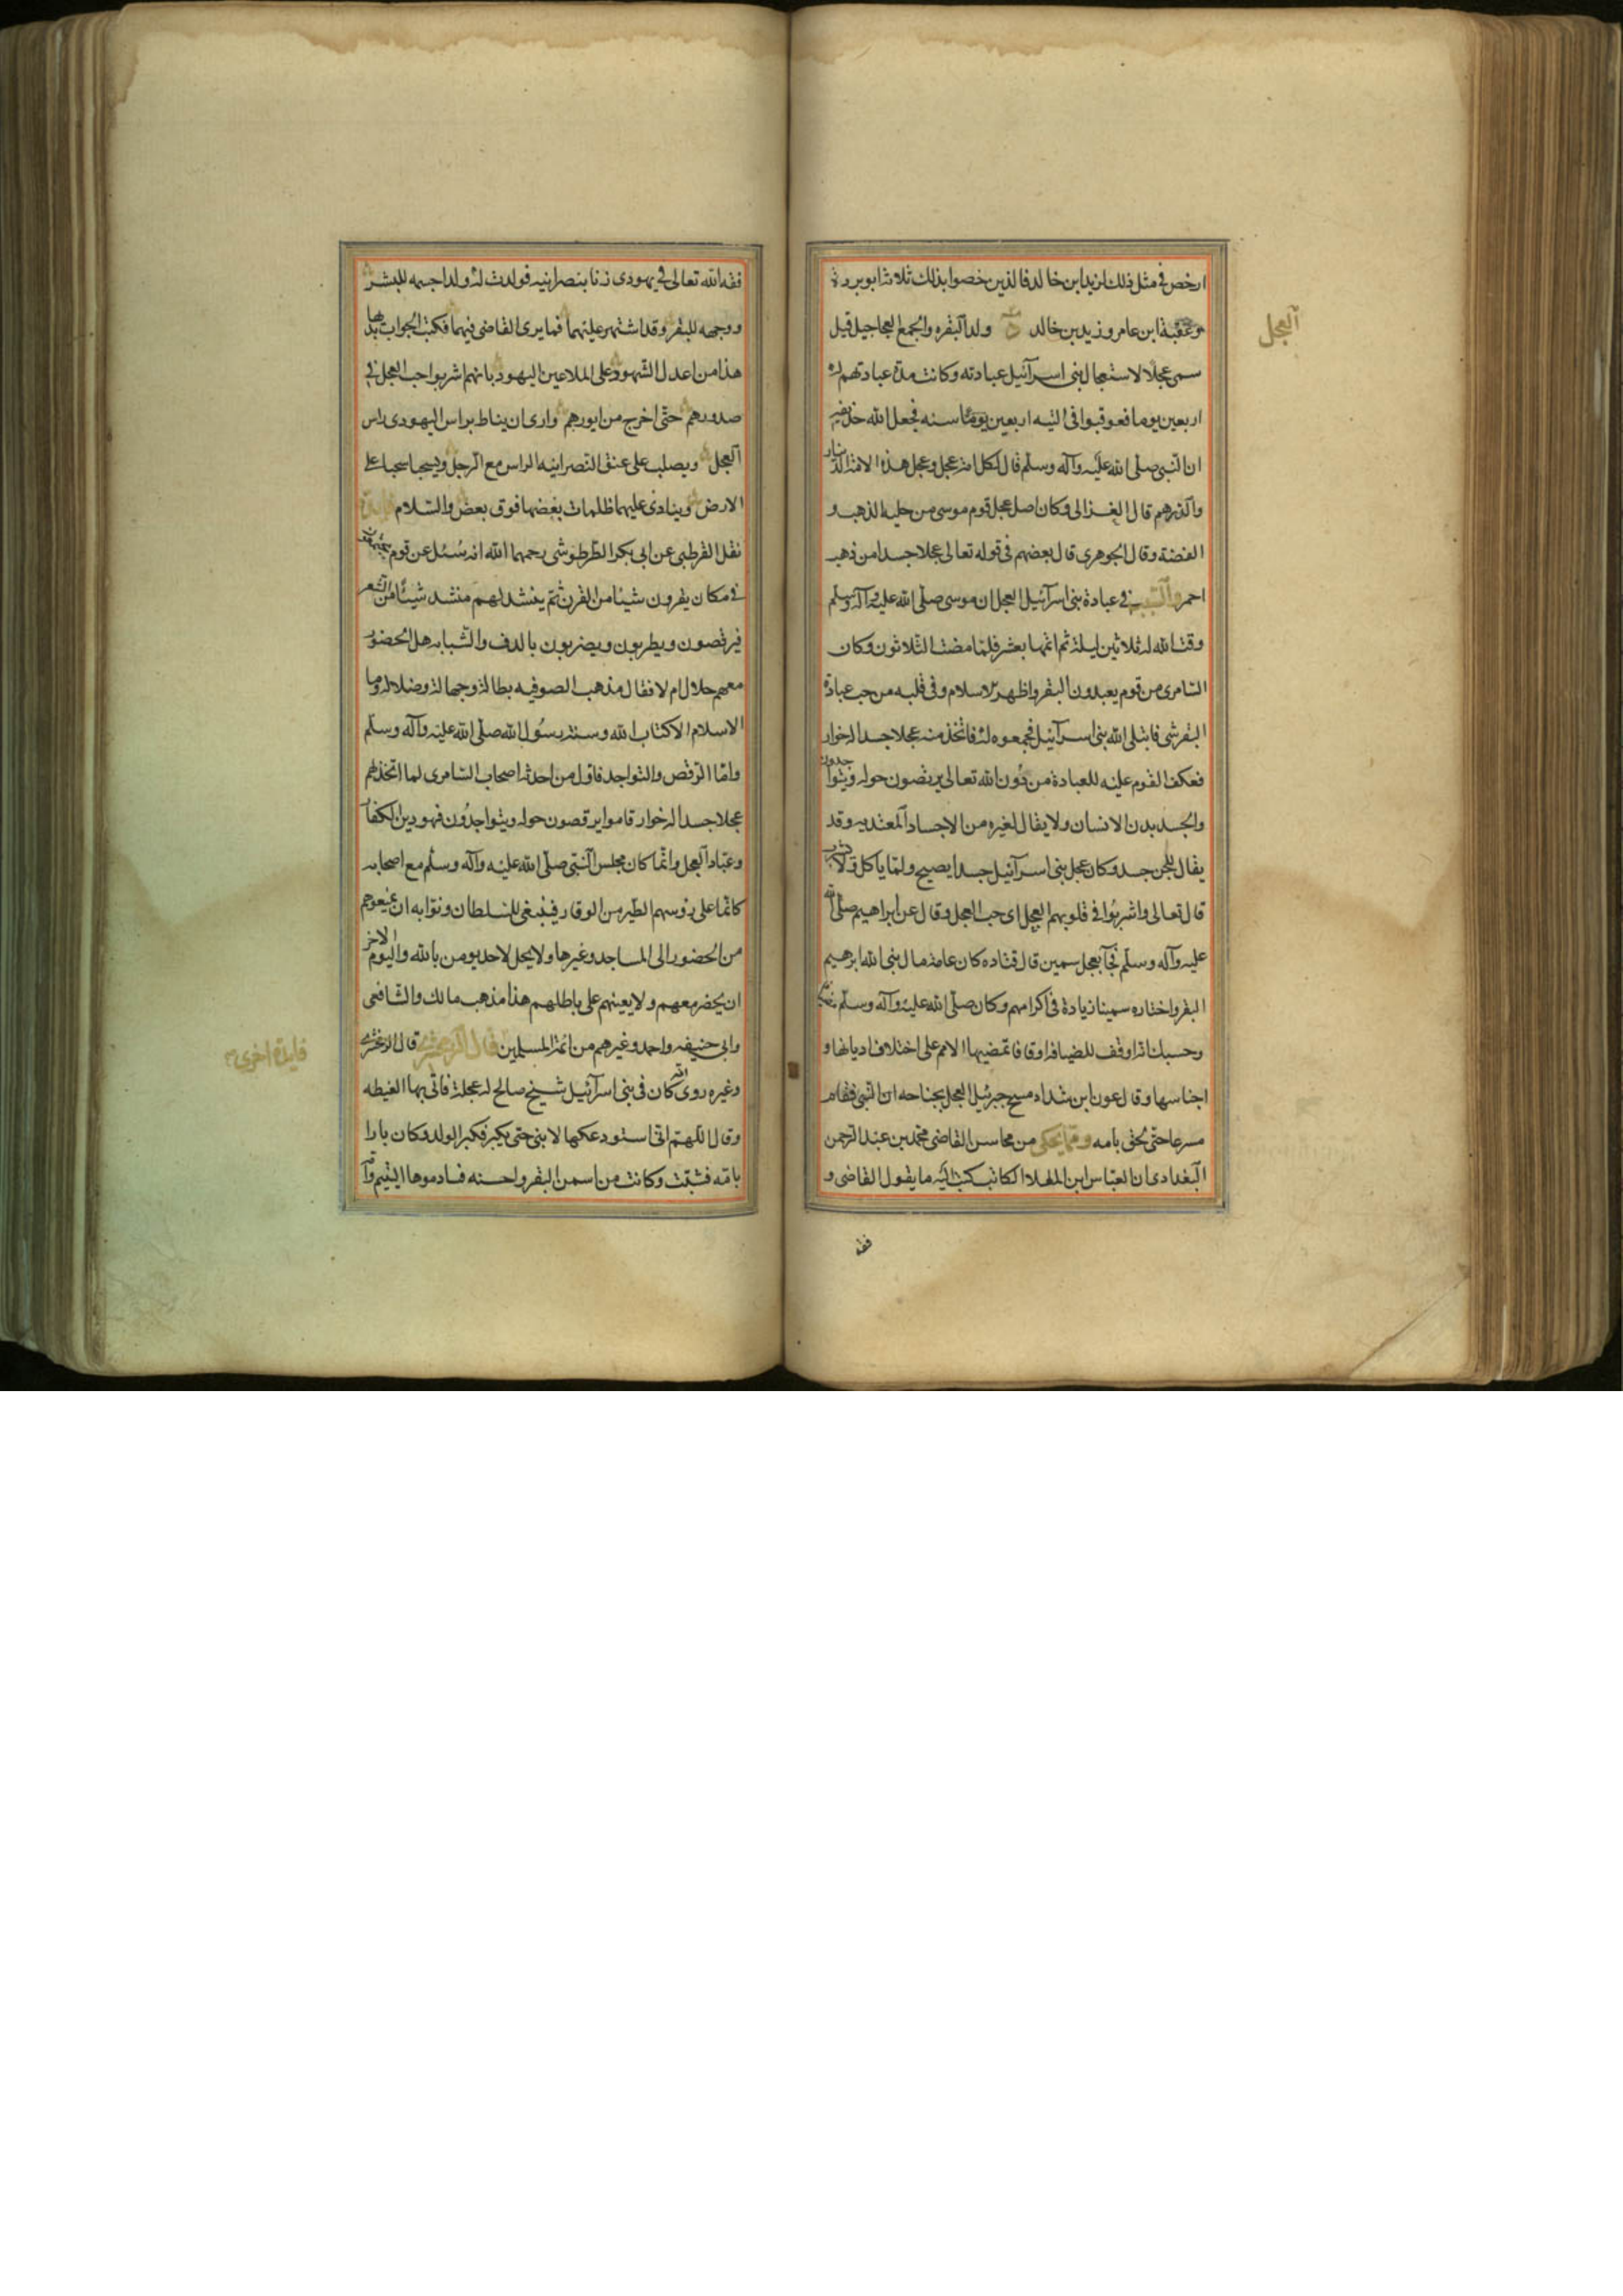 ارخص في مثل ذلك لزيد ابن خالد فالذين خصوا بذلك ثلاثة ابو بردة
وعقبة ابن عامر وزيد بن خالد ولد البقره والجمع العجاجيل قيل
العجل
سمى عجلا لاستعجال بنى اسرآئيل عبادته وكانت مدة عبادتهم له
اربعين يوما فعوقبوا فى التيه اربعين سنه فجعل الله
ان النبى صلى الله عليه وآله وسلم قال لكل امة عجل وعجل هذه الامة الدينار
والدرهم قال الغزالى وكان اصل عجل قوم موسى من حلية الذهب و
الفضة وقال الجوهرى قال بعضهم فى قوله تعالى عجلا جسدا من ذهب
احمر والسبب فى عبادة بنى اسرآئيل العجل ان موسى صلى الله عليه وآله وسلم
وقت الله له ثلاثين ليلة ثم اتمها بعشر فلما مضت الثلاثون وكان
السامرى من قوم يعبدون البقر واظهر الاسلام وفى قلبه من حب عبادة
البقر شى فابتلى الله بنى اسرآئيل فجمعوه له فاتخذ منه عجلا جسدا له خوار
فعكف القوم عليه للعبادة من دون الله تعالى يرقصون حوله ويتواجدون
والجسد بدن الانسان ولا يقال لغيره من الاجساد المغتذيه وقد
يقال للجن جسد وكان عجل بنى اسرآئيل جسدا يصيح ولما ياكل ولا شرب
قال تعالى واشربوا فى قلوبهم العجل اى حب العجل وقال عن ابراهيم صلى الله
عليه وآله وسلم فجآ بعجل سمين قال قتاده كان عامة مال بنى الله ابرهيم
البقر واختاره سمينا زيادة فى اكرامهم وكان صلى الله عليه وآله وسلم
وحسبك انه اوقف للضيافه اوقافا تمضيها الامم على اختلاف اديانها و
اجناسها وقال عون ابن شداد مسح جبرئيل العجل بجناحه ان النبى فقام
مسرعا حتى لحق بامه ومما يحكى من محاسن القاضى محمد بن عبد الرحمن
البغدادى ان العباس ابن المعلا الكاتب كتب اليه ما يقول القاضى و
فقه
فقه الله تعالى فى يهودى زنا بنصرانيه فولدت له ولدا جسمه للبشر
ووجهه للبقر وقد اشتهر عليهما فما يرى القاضى فيهما فكتب الجواب بديها
هذا من اعدل الشهود على الملاعين اليهود بانهم اشربوا حب العجل فى
صدورهم حتى اخرج من ايورهم وارى ان يناط براس اليهودى راس
العجل ويصلب على عنق النصرانيه الراس مع الرجل ويسحبا سحبا على
الارض وينادى عليهما ظلمات بعضها فوق بعض والسلام
نقل القرطبى عن ابى بكر الطرطوشى رحمهما الله انه سئل عن قوم يجتمعون
فى مكان يقرون شيئا من القرن ثم ينشد لهم منشد شيئا من الشعر
فيرقصون ويطربون ويضربون بالدف والشبابه هل الحضور
معهم حلال ام لا فقال مذهب الصوفيه بطالة وجهالة وضلالة وما
الاسلام الا كتاب الله وسنة رسول الله صلى الله عليه وآله وسلم
واما الرقص والتواجد فاول من احدثه اصحاب السامرى لما اتخذ لهم
عجلا جسدا له خوار قاموا يرقصون حوله ويتواجدون فهو دين الكفار
وعباد العجل وانما كان مجلس النبى صلى الله عليه وآله وسلم مع اصحابه
كانما على رؤسهم الطير من الوقار فينبغى للسلطان ونوابه ان يمنعوهم
من الحضور الى المساجد وغيرها ولا يحل لاحد يومن بالله واليوم الاخر
ان يحضر معهم ولا يعينهم على باطلهم هذا مذهب مالك والشافعى
وابى حنيفه واحمد وغيرهم من ائمة المسلمين قال الزمخشرى قال الزمخشرى
فايدة اخرى
وغيره روى انه كان فى بنى اسرآئيل شيخ صالح له عجلة فاتى بها الغيطه
وقال اللهم انى استودعكها لابنى حتى يكبر فكبر الولد وكان بارا
بامه فشبت وكانت من اسمن البقر واحسنه فساوموها اليتيم وامه